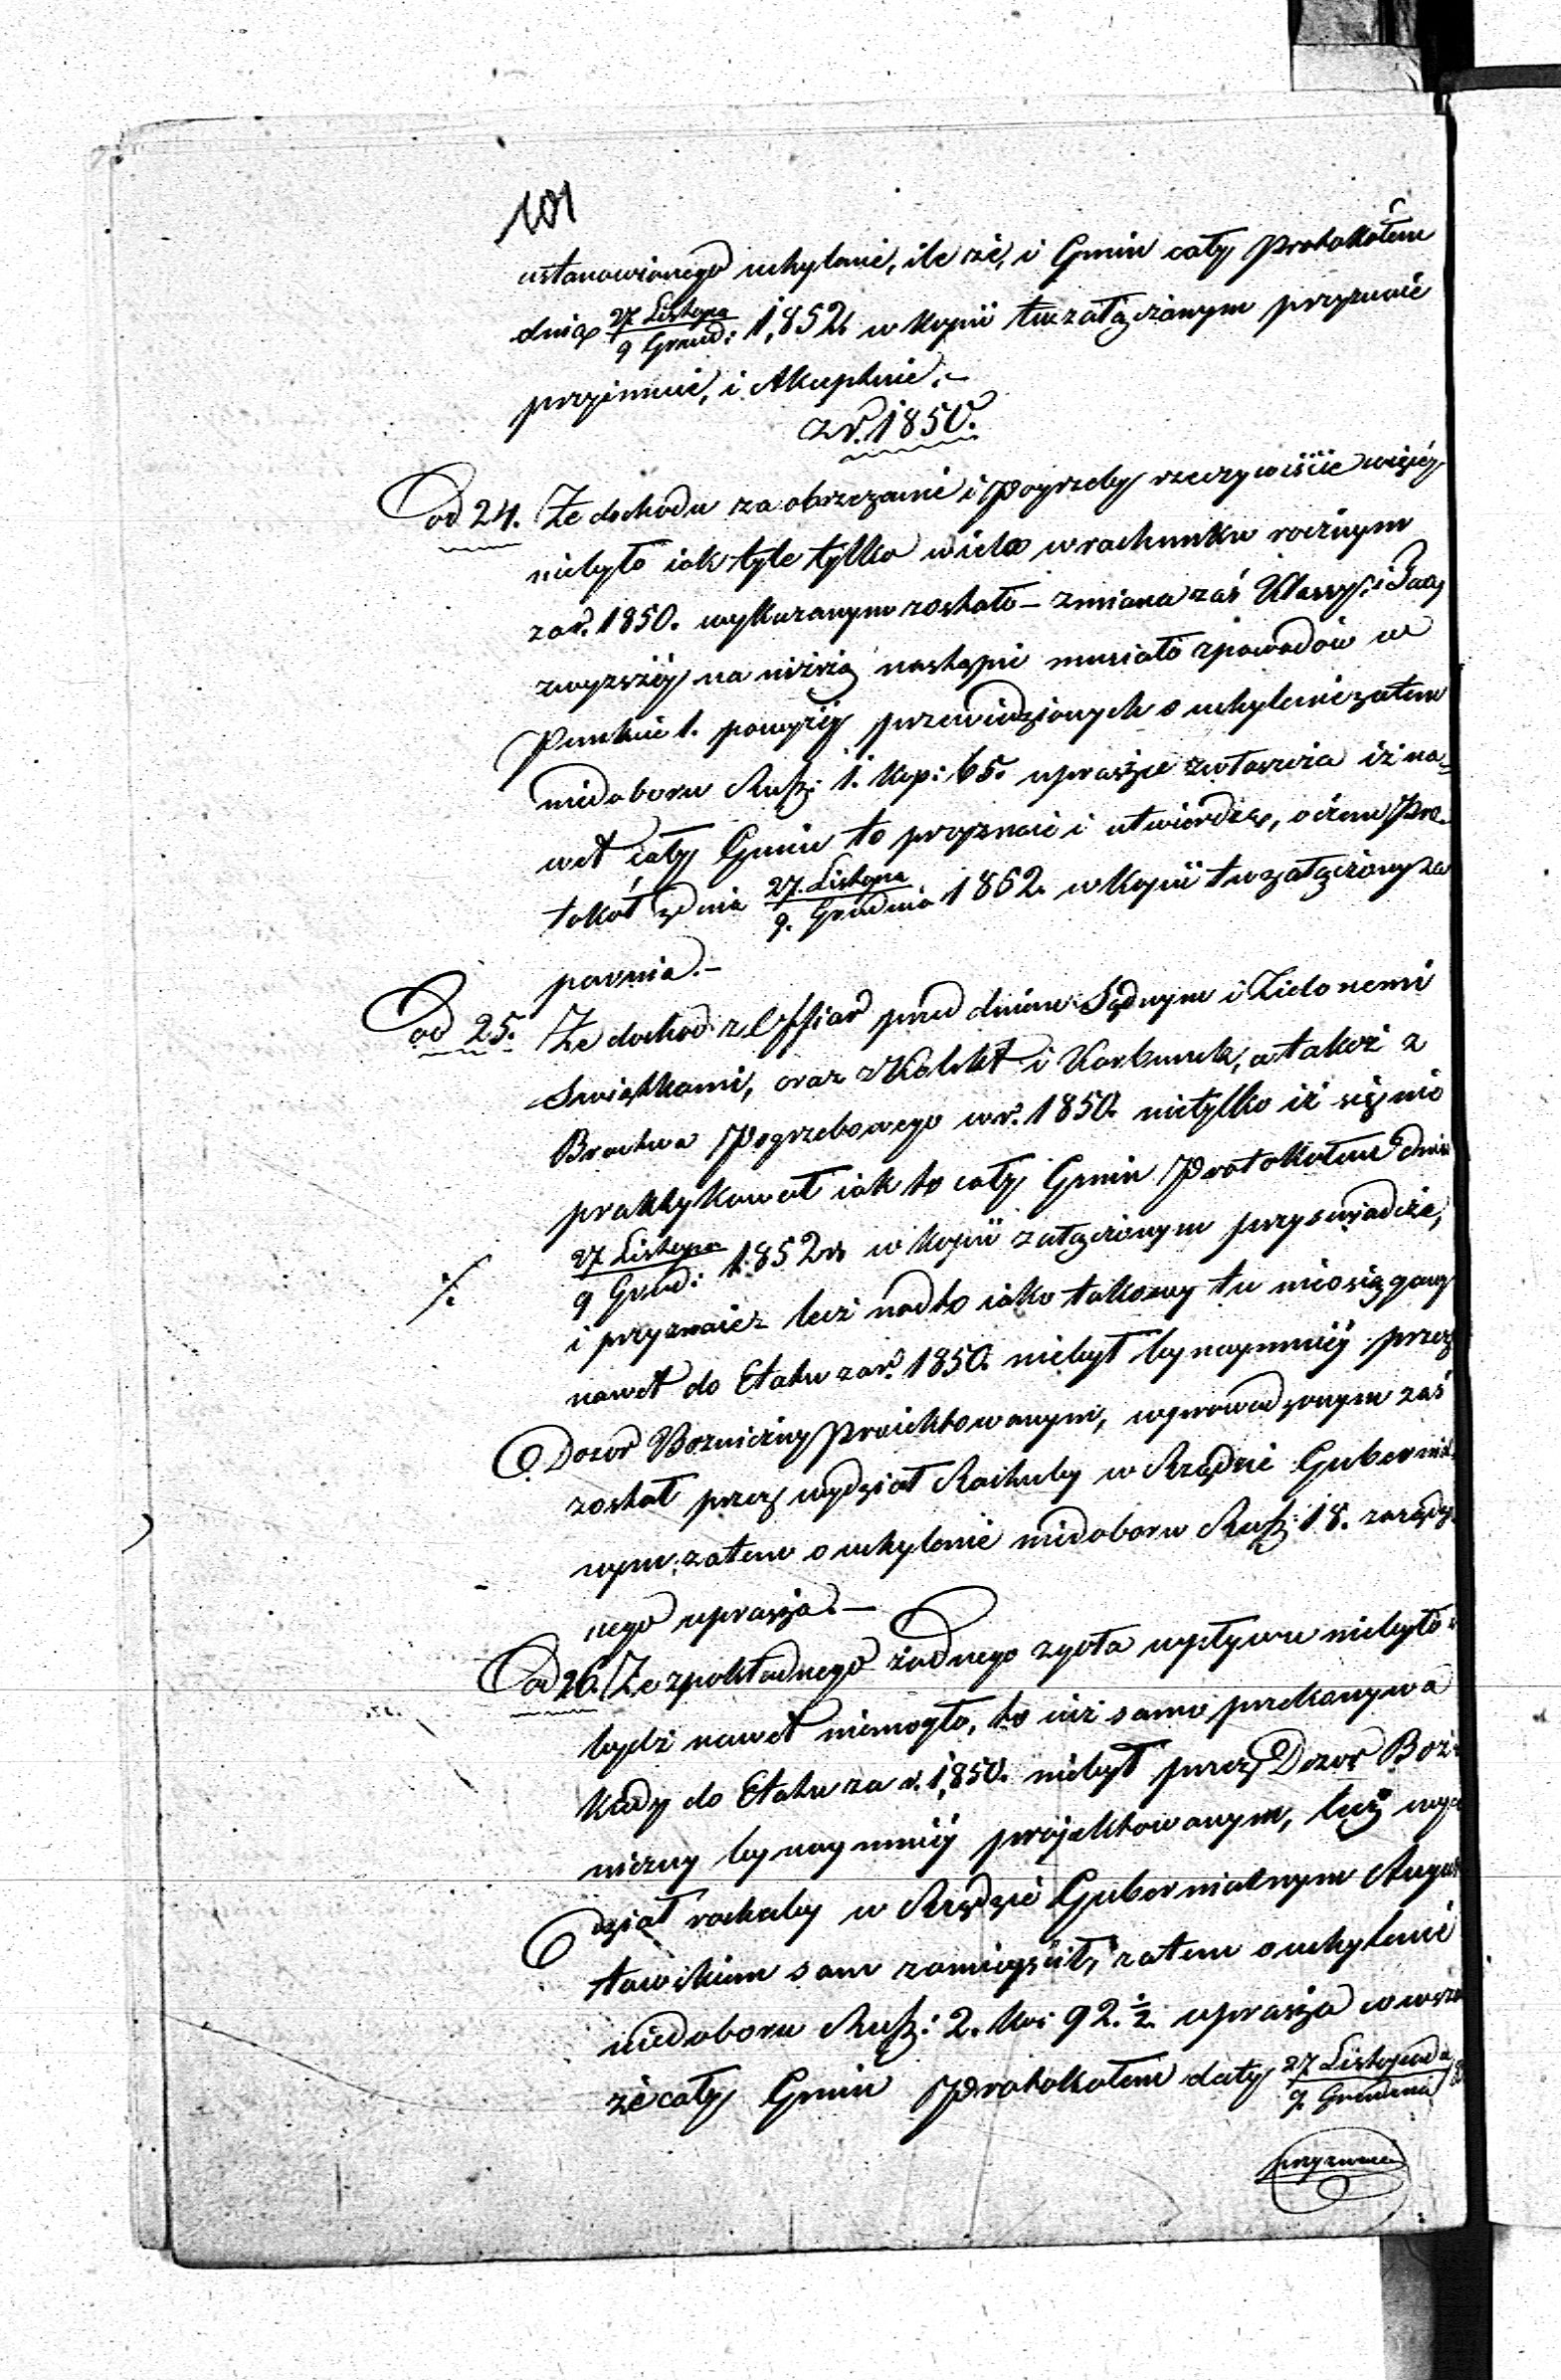 101
ustanowionego uchylenie, ile że, i Gmin cały Protokółem
dnia 27 Listopa / 9 Grud: 1852 w kopii tu załączonym przyznaie
przyimuie, i Akceptuie. –
z r. 1850.
od 24. Że dochodu za obrzezanie i pogrzeby rzeczywiście więcéj
niebyło iak tyle tylko wiele w rachunku rocznym
za r. 1850. wykazanym zostało – zmiana zaś Klassy
z wyższéj na niższą nastąpić musiało z powodów w
Punkcie 1. powyżéj przewidzionych o uchylenie zatem
niedoboru Rub: 1. kop: 65. uprasza zwłaszcza iż na-
wet cały Gmin to przyznaie i utwierdza, o czem Pro-
tokół z dnia 27. Listopa / 9. Grudnia 1852. w kopii tu załączony za
pewnia. –
od 25. Że dochod z Offiar przed dniem Sądnym i Zielonemi
Swiątkami, oraz z Kolekt i Karbunek, a takoż z
Bractwa Pogrzebowego w r. 1850. nietylko iż się nie
praktykował iak to cały Gmin Protokołem dnia
27 Listopa / 9 Grud: 1852 r. w kopii załączonym przyswiadcza,
i przyznaie – lecz nadto iako takowy tu nieosiągany
nawet do Etatu za r. 1850. niebył bynaymniéj przez
Dozor Bozniczny proiektowanym, wprowadzonym zaś
został przez wydział Rachuby w Rządzie Gubernial
nym, zatem o uchylenie niedoboru Rub: 18. zarządzo
nego uprasza. –
od 26. Że z pokładnego żadnego zgoła wpływu niebyło i
bydź nawet niemogło, to iuż samo przekonywa
kiedy do Etatu za r. 1850. niebył przez Dozor Boż-
niczny bynaymniéj projektowanym, lecz wy
dział rachuby w Rządzie Gubernialnym Augus
towskim sam zamieyścił, zatem o uchylenie
niedoboru Rub: 2. ko: 92. ½. uprasza
że cały Gmin Protokołem daty 27 Listopada / 9 Grudnia
przyznaie